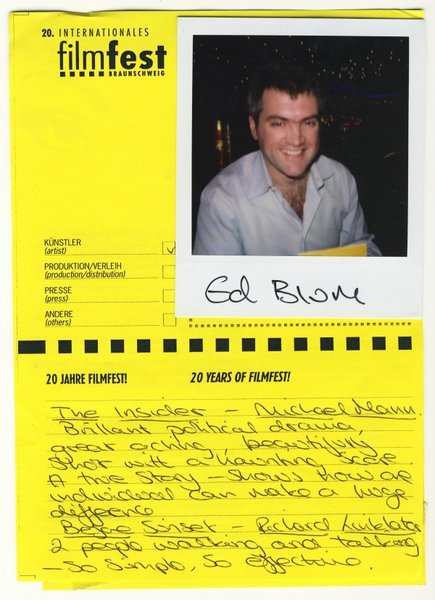 20. INTERNATIONALES
filmfest
BRAUNSCHWEIG
KÜNSTLER
(artist)
PRODUKTION/VERLEIH
(production/distribution)
PRESSE
(press)
ANDERE
(others)
Ed Blum
20 JAHRE FILMFEST!
20 YEARS OF FILMFEST!
The Insider - Michael Mann.
Brilliant political drama,
great acting, beautifully
shot with a haunting score.
A true story - shows how an
individual can make a huge
difference
Before Sunset - Richard Linklater
2 people walking and talking
- so simple, so effective.